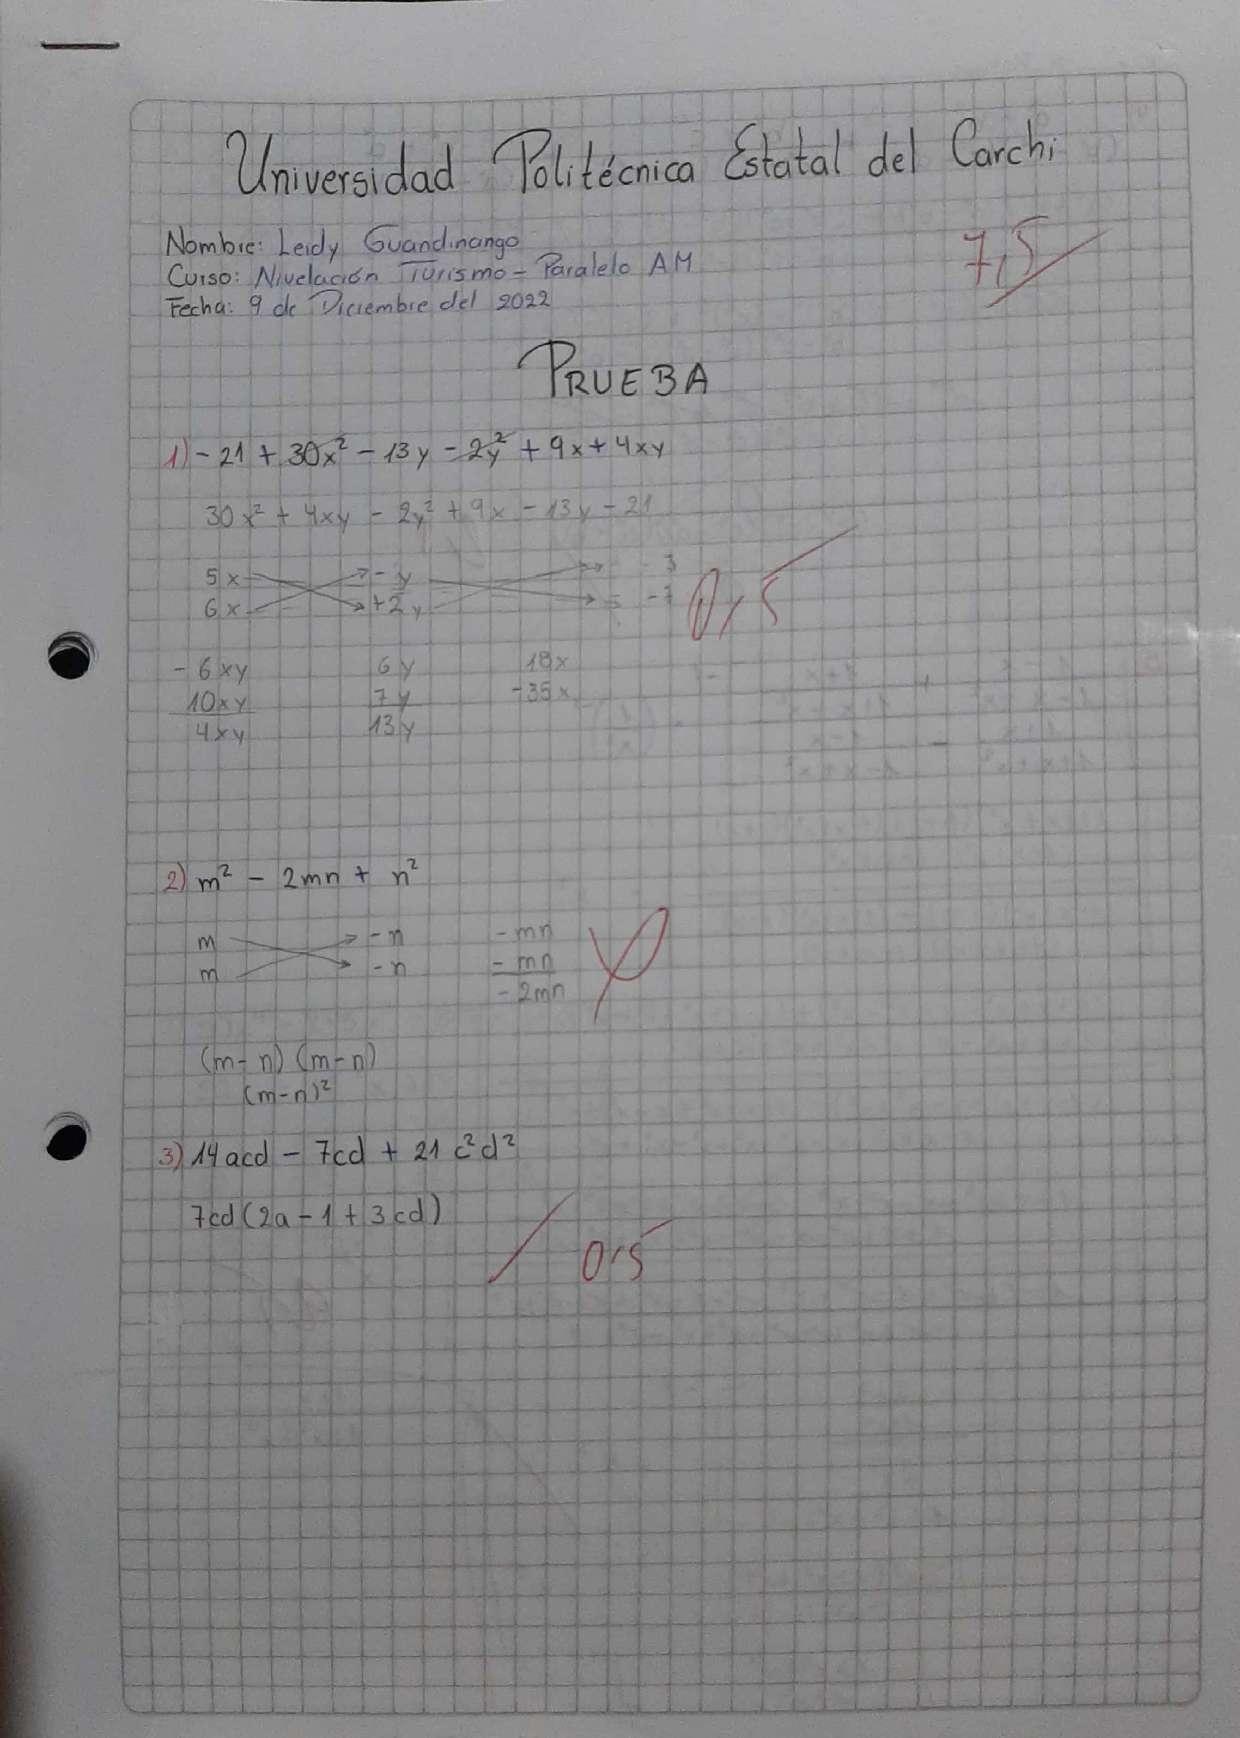 Universidad Politécnica Estatal del Carchi
Nombre: Leidy Guandinango
Curso: Nivelación Turismo - Paralelo AM
Fecha: 9 de Diciembre del 2022
7,5
PRUEBA
1) - 21 + 30x² - 13y - 2y² + 9x + 4xy
30x² + 4xy - 2y² + 9x - 13y - 21
5x - y 3
6x +2y - 7
0,5
- 6xy 6y 18x
10xy 7y -35x
4xy 13y
2) m² - 2mn + n²
m - n - mn
m - n - mn
- 2mn
(m - n) (m - n)
(m - n)²
3) 14acd - 7cd + 21 c²d²
7cd (2a - 1 + 3cd)
0,5